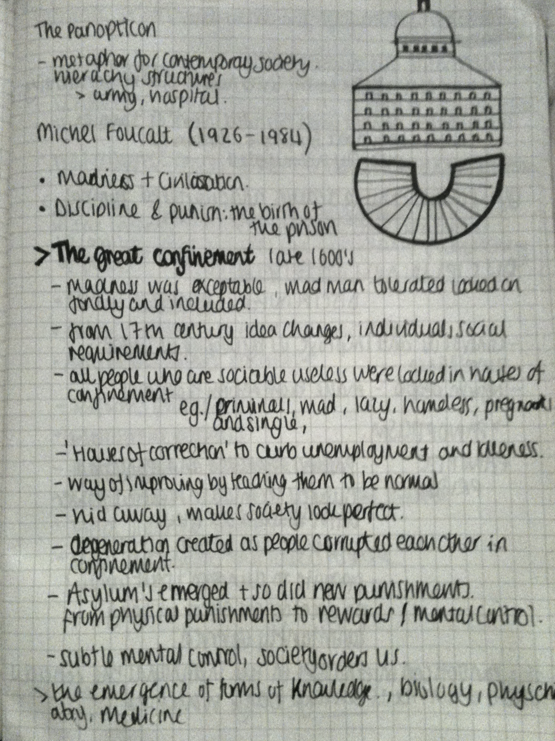 The Panopticon
- metaphor for contemporary society.
hierachy structures
> army, hospital.
Michel Foucalt (1926-1984)
• Madness + Civilisation.
• Discipline & punish: the birth of
the prison
> The great confinement late 1600's
- madness was exceptable, mad man tolerated looked on
fondly and included.
- from 17th century idea changes, individuals social
requirements.
- all people who are sociable useless were locked in houses of
confinement
eg./ criminals, mad, lazy, homeless, pregnant
and single,
- 'Houses of correction' to curb unemployment and idleness.
- way of improving by teaching them to be normal
- hid away, makes society look perfect.
- degeneration created as people corrupted each other in
confinement.
- Asylum's emerged + so did new punishments.
from physical punishments to rewards / mental control.
- subtle mental control, society orders us.
> the emergence of forms of knowledge., biology, physch
atry, medicine